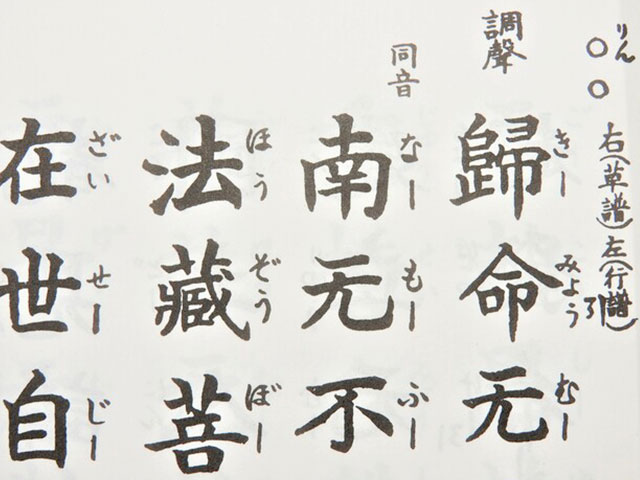 りん
○○
右(草譜)左(行譜)
調聲
歸命无
きーみようむー
同音
南无不
なーもーふー
法藏菩
ほうぞうぼー
在世自
ざいせーじー